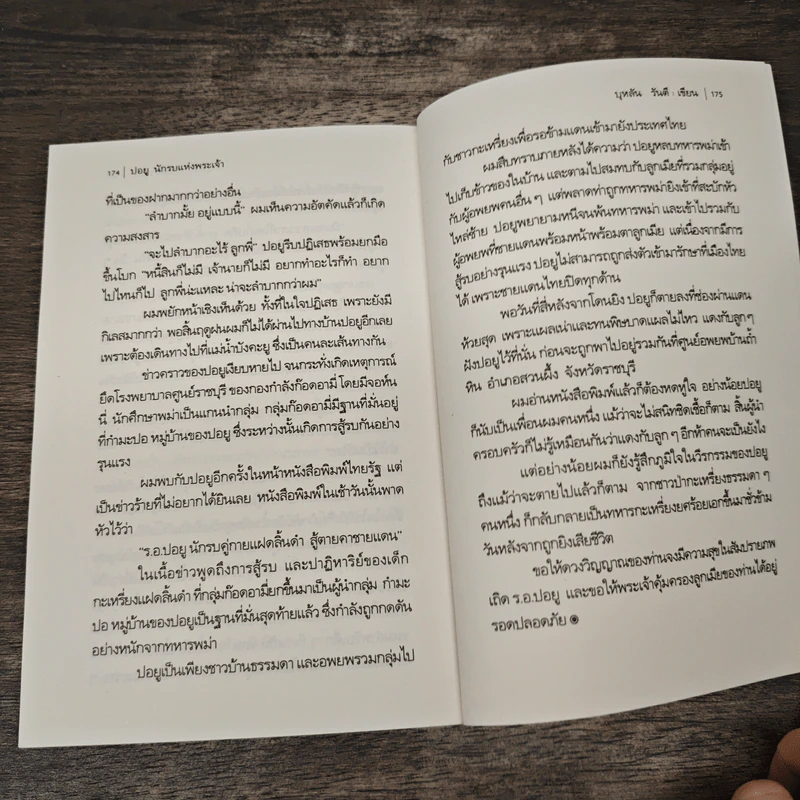 174 | ปอยู นักรบแห่งพระเจ้า
ที่เป็นของฝากมากกว่าอย่างอื่น
"ลำบากมั้ย อยู่แบบนี้" ผมเห็นความอัตคัดแล้วก็เกิด
ความสงสาร
"จะไปลำบากอะไร้ ลูกพี่" ปอยูรีบปฏิเสธพร้อมยกมือ
ขึ้นโบก "หนี้สินก็ไม่มี เจ้านายก็ไม่มี อยากทำอะไรก็ทำ อยาก
ไปไหนก็ไป ลูกพี่น่ะแหละ น่าจะลำบากกว่าผม"
ผมพยักหน้าเชิงเห็นด้วย ทั้งที่ในใจปฏิเสธ เพราะยังมี
กิเลสมากกว่า พอสิ้นฤดูฝนผมก็ไม่ได้ผ่านไปทางบ้านปอยูอีกเลย
เพราะต้องเดินทางไปที่แม่น้ำบังคะยู ซึ่งเป็นคนละเส้นทางกัน
ข่าวคราวของปอยูเงียบหายไป จนกระทั่งเกิดเหตุการณ์
ยึดโรงพยาบาลศูนย์ราชบุรี ของกองกำลังก๊อดอามี่ โดยมีจอห์น
นี่ นักศึกษาพม่าเป็นแกนนำกลุ่ม กลุ่มก๊อดอามี่มีฐานที่มั่นอยู่
ที่กำมะปอ หมู่บ้านของปอยู ซึ่งระหว่างนั้นเกิดการสู้รบกันอย่าง
รุนแรง
ผมพบกับปอยูอีกครั้งในหน้าหนังสือพิมพ์ไทยรัฐ แต่
เป็นข่าวร้ายที่ไม่อยากได้ยินเลย หนังสือพิมพ์ในเช้าวันนั้นพาด
หัวไว้ว่า
"ร.อ.ปอยู นักรบคู่กายแฝดลิ้นดำ สู้ตายคาชายแดน"
ในเนื้อข่าวพูดถึงการสู้รบ และปาฏิหาริย์ของเด็ก
กะเหรี่ยงแฝดลิ้นดำ ที่กลุ่มก๊อดอามี่ยกขึ้นมาเป็นผู้นำกลุ่ม กำมะ
ปอ หมู่บ้านของปอยูเป็นฐานที่มั่นสุดท้ายแล้ว ซึ่งกำลังถูกกดดัน
อย่างหนักจากทหารพม่า
ปอยูเป็นเพียงชาวบ้านธรรมดา และอพยพรวมกลุ่มไป
บุหลัน รันตี : เขียน | 175
กับชาวกะเหรี่ยงเพื่อรอข้ามแดนเข้ามายังประเทศไทย
ผมสืบทราบภายหลังได้ความว่า ปอยูหลบทหารพม่าเข้า
ไปเก็บข้าวของในบ้าน และตามไปสมทบกับลูกเมียที่รวมกลุ่มอยู่
กับผู้อพยพคนอื่น ๆ แต่พลาดท่าถูกทหารพม่ายิงเข้าที่สะบักหัว
ไหล่ซ้าย ปอยูพยายามหนีจนพ้นทหารพม่า และเข้าไปรวมกับ
ผู้อพยพที่ชายแดนพร้อมหน้าพร้อมตาลูกเมีย แต่เนื่องจากมีการ
สู้รบอย่างรุนแรง ปอยูไม่สามารถถูกส่งตัวเข้ามารักษาที่เมืองไทย
ได้ เพราะชายแดนไทยปิดทุกด้าน
พอวันที่สี่หลังจากโดนยิง ปอยูก็ตายลงที่ช่องผ่านแดน
ห้วยสุด เพราะแผลเน่าและทนพิษบาดแผลไม่ไหว แดงกับลูกๆ
ฝังปอยูไว้ที่นั่น ก่อนจะถูกพาไปอยู่รวมกันที่ศูนย์อพยพบ้านถ้ำ
หิน อำเภอสวนผึ้ง จังหวัดราชบุรี
ผมอ่านหนังสือพิมพ์แล้วก็ต้องหดหู่ใจ อย่างน้อยปอยู
ก็นับเป็นเพื่อนผมคนหนึ่ง แม้ว่าจะไม่สนิทชิดเชื้อก็ตาม สิ้นผู้นำ
ครอบครัวก็ไม่รู้เหมือนกันว่าแดงกับลูกๆ อีกห้าคนจะเป็นยังไง
แต่อย่างน้อยผมก็ยังรู้สึกภูมิใจในวีรกรรมของปอยู
ถึงแม้ว่าจะตายไปแล้วก็ตาม จากชาวป่ากะเหรี่ยงธรรมดา ๆ
คนหนึ่ง ก็กลับกลายเป็นทหารกะเหรี่ยงยศร้อยเอกขึ้นมาชั่วข้าม
วันหลังจากถูกยิงเสียชีวิต
ขอให้ดวงวิญญาณของท่านจงมีความสุขในสัมปรายภพ
เถิด ร.อ.ปอยู และขอให้พระเจ้าคุ้มครองลูกเมียของท่านได้อยู่
รอดปลอดภัย ◉